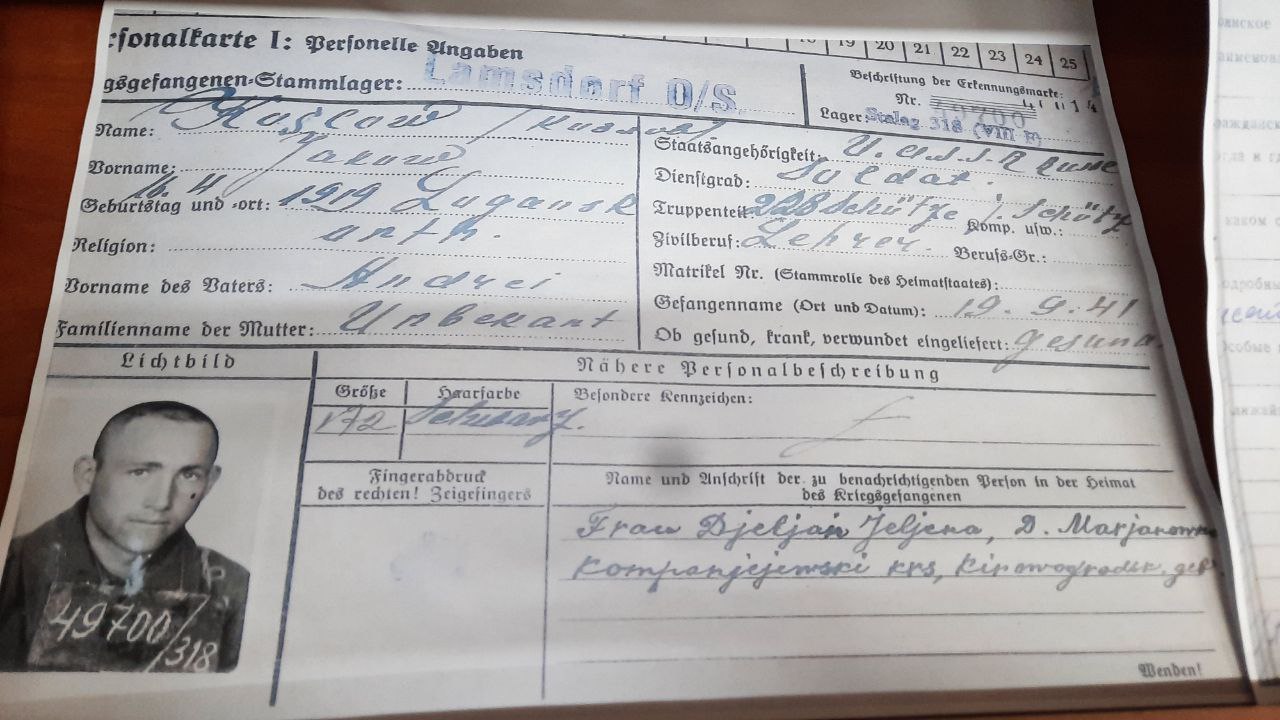 rsonalkarte I: Personelle Angaben
18 19 20 21 22 23 24 25
gsgefangenen-Stammlager: Lamsdorf O/S
Beschriftung der Erkennungsmarke:
Nr.
Lager: Stalag 318 (VIII F)
Name:
Vorname: Jakow
Geburtstag und -ort: 16. 4. 1919 Lugansk
Religion: orth.
Vorname des Vaters: Andrei
Familienname der Mutter: Unbekant
Staatsangehörigkeit: U.d.S.S.R
Dienstgrad: Soldat.
Truppenteil: 228 Schütze Komp. usw.:
Zivilberuf: Lehrer. Berufs-Gr.:
Matrikel Nr. (Stammrolle des Heimatstaates):
Gefangenname (Ort und Datum): 19. 9. 41
Ob gesund, krank, verwundet eingeliefert: gesund
Lichtbild
Nähere Personalbeschreibung
Größe
Haarfarbe
Besondere Kennzeichen:
172
Schwarz.
Fingerabdruck
des rechten! Zeigefingers
Name und Anschrift der zu benachrichtigenden Person in der Heimat
des Kriegsgefangenen
Frau Djeljan Jeljena, D. Marjanowk
Kompanjejewski krs, Kirowogradsk. geb
49700/318
Wenden!